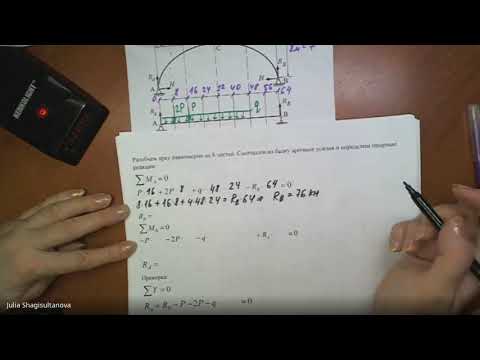 C
R_A
H
A
R_B
H
B
0 8 16 24 32 40 48 56 64
R_A
2P P
q
R_B
A
B
Разобьем арку равномерно на 8 частей. Составляем на балку арочные усилия и определим опорные
реакции
∑M_A=0
P·16 +2P·8 +q·48·24 −R_B·64=0
8·16+16·8+4·48·24=R_B·64 R_B=76 кН
R_B=
∑M_B=0
−P −2P −q +R_A =0
R_A =
Проверка:
∑Y=0
R_A+R_B−P−2P−q =0
Julia Shagisultanova